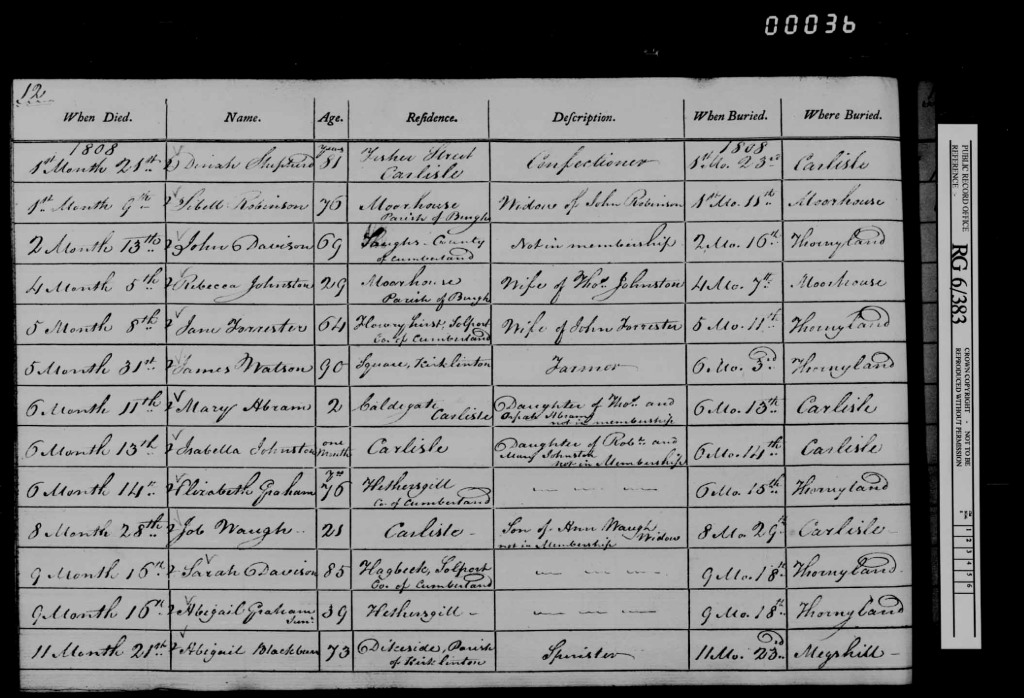 00036
12
When Died. Name. Age. Residence. Description. When Buried. Where Buried.
1808 years 1808
1st Month 21st Dinah Shepherd 81 Fisher Street Carlisle Confectioner 1st Mo. 23rd Carlisle
1st Month 9th Sibell Robinson 76 Moorhouse Parish of Burgh Widow of John Robinson 1st Mo. 11th Moorhouse
2 Month 13th John Davison 69 Saughs County of Cumberland Not in membership 2 Mo. 16th Thornyland
4 Month 5th Rebecca Johnston 29 Moorhouse Parish of Burgh Wife of Thos. Johnston 4 Mo. 7th Moorhouse
5 Month 8th Jane Forrester 64 Howryhirst, Solport Co. of Cumberland Wife of John Forrester 5 Mo. 11th Thornyland
5 Month 31st James Watson 90 Square, Kirklinton Farmer 6 Mo. 3d Thornyland
6 Month 11th Mary Abram 2 Caldegate Carlisle Daughter of Thos. and Abram not in membership 6 Mo. 13th Carlisle
6 Month 13th Isabella Johnston one Month Carlisle Daughter of Robt. and Mary Johnston not in Membership 6 Mo. 14th Carlisle
6 Month 14th Elizabeth Graham yrs 76 Hethersgill Co. of Cumberland — — — 6 Mo. 15th Thornyland
8 Month 28th Job Waugh 21 Carlisle Son of Ann Waugh Widow not in Membership 8 Mo. 29th Carlisle
9 Month 16th Sarah Davison 85 Hagbeck, Solport Co. of Cumberland — — — 9 Mo. 18th Thornyland
9 Month 16th Abigail Graham Junr. 39 Hethersgill — — — 9 Mo. 18th Thornyland
11 Month 21st Abigail Blackburn 73 Dikeside, Parish of Kirklinton Spinster 11 Mo. 23d Megshill
PUBLIC RECORD OFFICE
REFERENCE
RG 6/383
CROWN COPYRIGHT - NOT TO BE
REPRODUCED WITHOUT PERMISSION
1 2 3 4 5 6